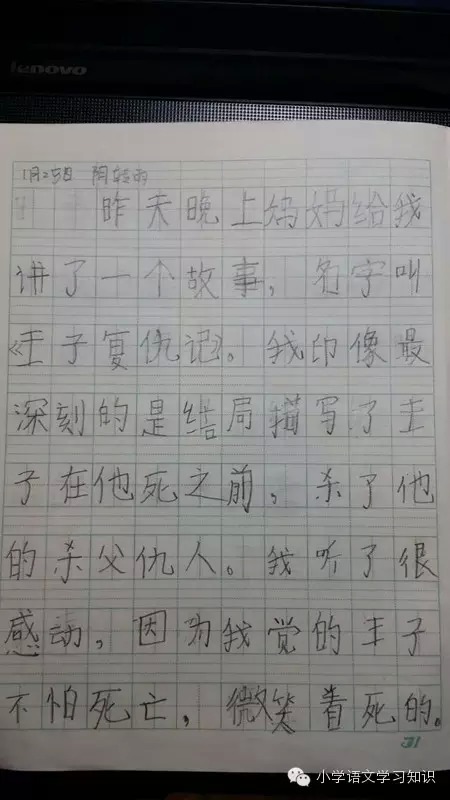 lenovo
1月25日 阴转雨
昨天晚上妈妈给我
讲了一个故事，名字叫
《王子复仇记》。我印像最
深刻的是结局描写了王
子在他死之前，杀了他
的杀父仇人。我听了很
感动，因为我觉的王子
不怕死亡，微笑着死的。
31
小学语文学习知识